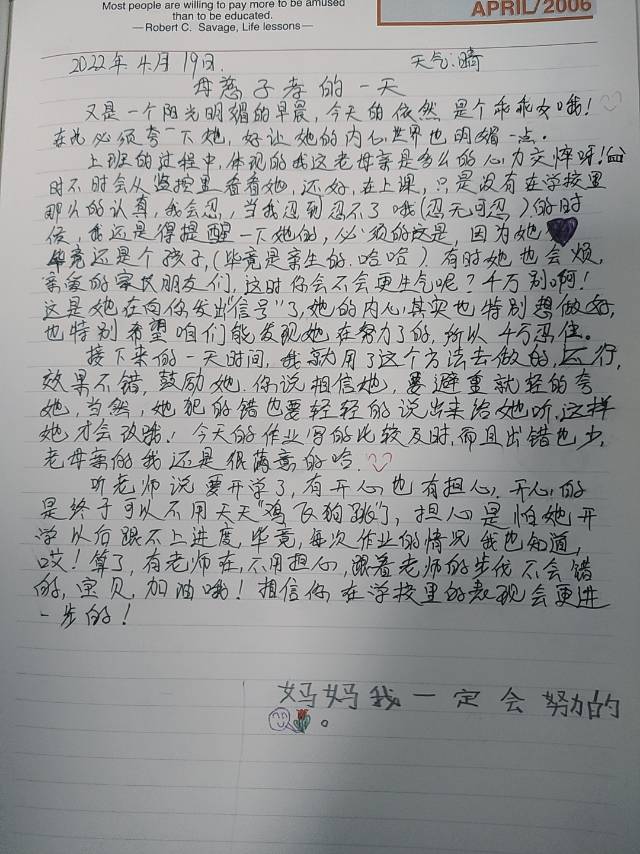 Most people are willing to pay more to be amused
than to be educated.
—Robert C. Savage, Life lessons—
APRIL/2006
2022年4月19日. 天气:晴
母慈子孝的一天
又是一个阳光明媚的早晨,今天的依然是个乖乖女哦!
在此必须夸一下她,好让她的内心世界也明媚一点.
上班的过程中,体现的我这老母亲是多么的心力交悴呀!
时不时会从监控里看看她,还好,在上课,只是没有在学校里
那么的认真,我会忍,当我忍到忍不了哦(忍无可忍)的时
候,我还是得提醒一下她的,必须的这是,因为她
毕竟还是个孩子,(毕竟是亲生的.哈哈)有时她也会烦,
亲爱的家长朋友们,这时你会不会更生气呢?千万别啊!
这是她在向你发出"信号"了,她的内心其实也特别想做好,
也特别希望咱们能发现她在努力了的,所以千万忍住.
接下来的一天时间,我就用了这个方法去做的,还行,
效果不错,鼓励她.你说相信她,要避重就轻的夸
她,当然,她犯的错也要轻轻的说出来给她听,这样
她才会改哦!今天的作业写的比较及时,而且出错也少,
老母亲的我还是很满意的哈.
听老师说要开学了,有开心也有担心,开心的
是终于可以不用天天"鸡飞狗跳"了,担心是怕她开
学以后跟不上进度,毕竟,每次作业的情况我也知道,
哎!算了,有老师在,不用担心,跟着老师的步伐不会错
的,宝贝,加油哦!相信你在学校里的表现会更进
一步的!
妈妈我一定会努力的
。